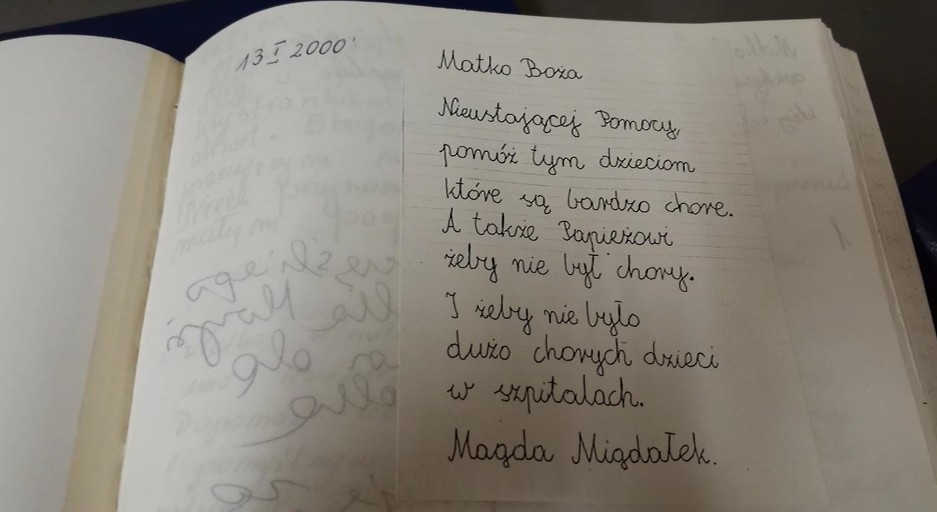 13 I 2000
Matko Boża
Nieustającej Pomocy,
pomóż tym dzieciom
które są bardzo chore.
A także Papieżowi
żeby nie był chory.
I żeby nie było
dużo chorych dzieci
w szpitalach.
Magda Migdałek.